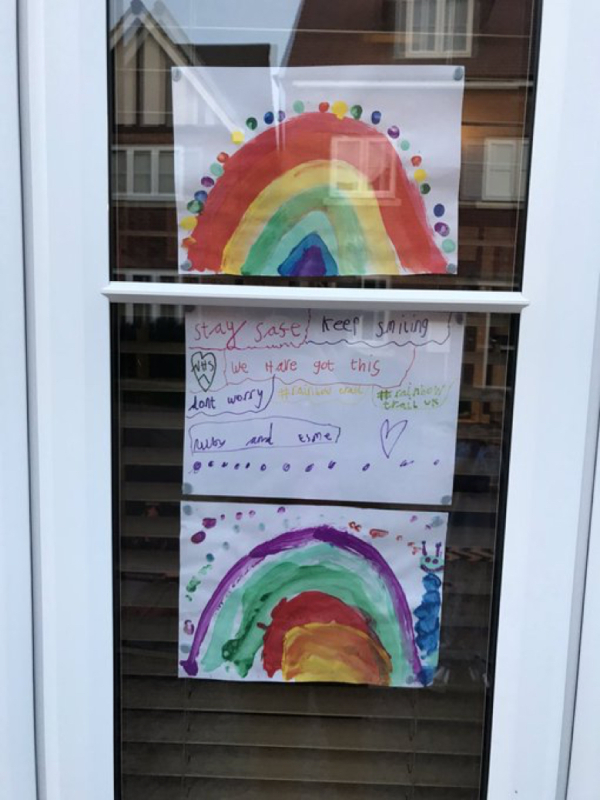 stay safe Keep smiling
NHS We Have got this
dont worry #rainbow trail #rainbow trail us
Ruby and Esme